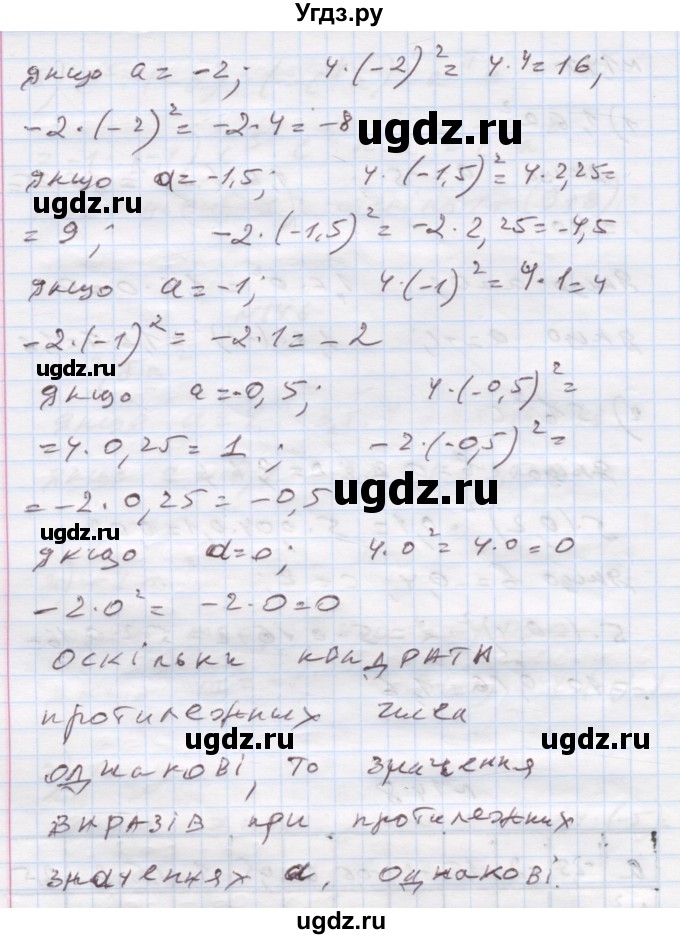 Угдз.ру
якщо a = -2; 4·(-2)² = 4·4 = 16;
-2·(-2)² = -2·4 = -8
ugdz.ru
якщо a = -1,5; 4·(-1,5)² = 4·2,25 =
ugdz.ru
= 9; -2·(-1,5)² = -2·2,25 = -4,5
якщо a = -1; 4·(-1)² = 4·1 = 4
-2·(-1)² = -2·1 = -2
ugdz.ru
якщо a = -0,5; 4·(-0,5)² =
= 4·0,25 = 1; -2·(-0,5)² =
= -2·0,25 = -0,5
ugdz.ru
ugdz.ru
якщо a = 0; 4·0² = 4·0 = 0
-2·0² = -2·0 = 0
оскільки квадрати
протилежних чисел
ugdz.ru
однакові, то значення
виразів при протилежних
значеннях a, однакові.
ugdz.ru